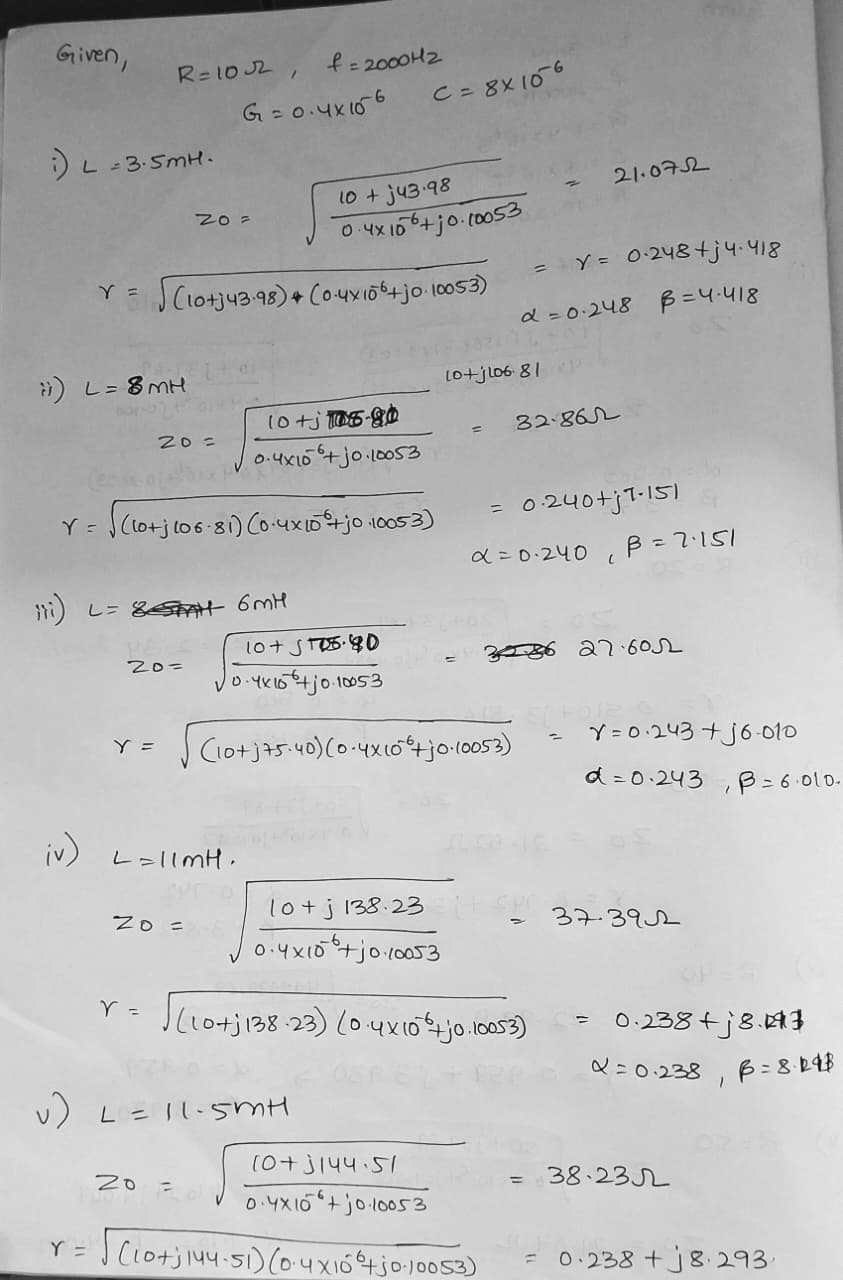 Given,
R=10Ω, f=2000Hz
G=0.4×10⁻⁶ C=8×10⁻⁶
i) L=3.5mH.
Z0 = √((10+j43.98)/(0.4×10⁻⁶+j0.10053)) = 21.07Ω
γ = √((10+j43.98)*(0.4×10⁻⁶+j0.10053)) = γ= 0.248+j4.418
α=0.248 β=4.418
ii) L=8mH
10+j106.81
Z0 = √((10+j)/(0.4×10⁻⁶+j0.10053)) = 32.86Ω
γ = √((10+j106.81)(0.4×10⁻⁶+j0.10053)) = 0.240+j7.151
α=0.240, β=7.151
iii) L= 6mH
Z0= √((10+j75.40)/(0.4×10⁻⁶+j0.10053)) = 27.60Ω
γ = √((10+j75.40)(0.4×10⁻⁶+j0.10053)) = γ=0.243+j6.010
α=0.243, β=6.010.
iv) L=11mH.
Z0 = √((10+j138.23)/(0.4×10⁻⁶+j0.10053)) = 37.39Ω
γ = √((10+j138.23)(0.4×10⁻⁶+j0.10053)) = 0.238+j8.
α=0.238, β=8.
v) L=11.5mH
Z0 = √((10+j144.51)/(0.4×10⁻⁶+j0.10053)) = 38.23Ω
γ= √((10+j144.51)(0.4×10⁻⁶+j0.10053)) = 0.238+j8.293.